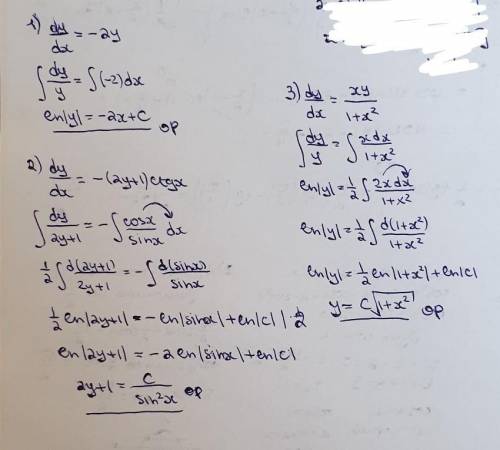 1) dy/dx = -2y
∫ dy/y = ∫(-2)dx
en|y| = -2x+C op
2) dy/dx = -(2y+1)ctgx
∫ dy/2y+1 = -∫ cosx/sinx dx
1/2 ∫ d(2y+1)/2y+1 = -∫ d(sinx)/sinx
1/2 en|2y+1| = -en|sinx| + en|c| | · 2
en|2y+1| = -2en|sinx| + en|c|
2y+1 = C/sin²x op
3) dy/dx = xy/1+x²
∫ dy/y = ∫ xdx/1+x²
en|y| = 1/2 ∫ 2xdx/1+x²
en|y| = 1/2 ∫ d(1+x²)/1+x²
en|y| = 1/2 en|1+x²| + en|c|
y = C√1+x² op